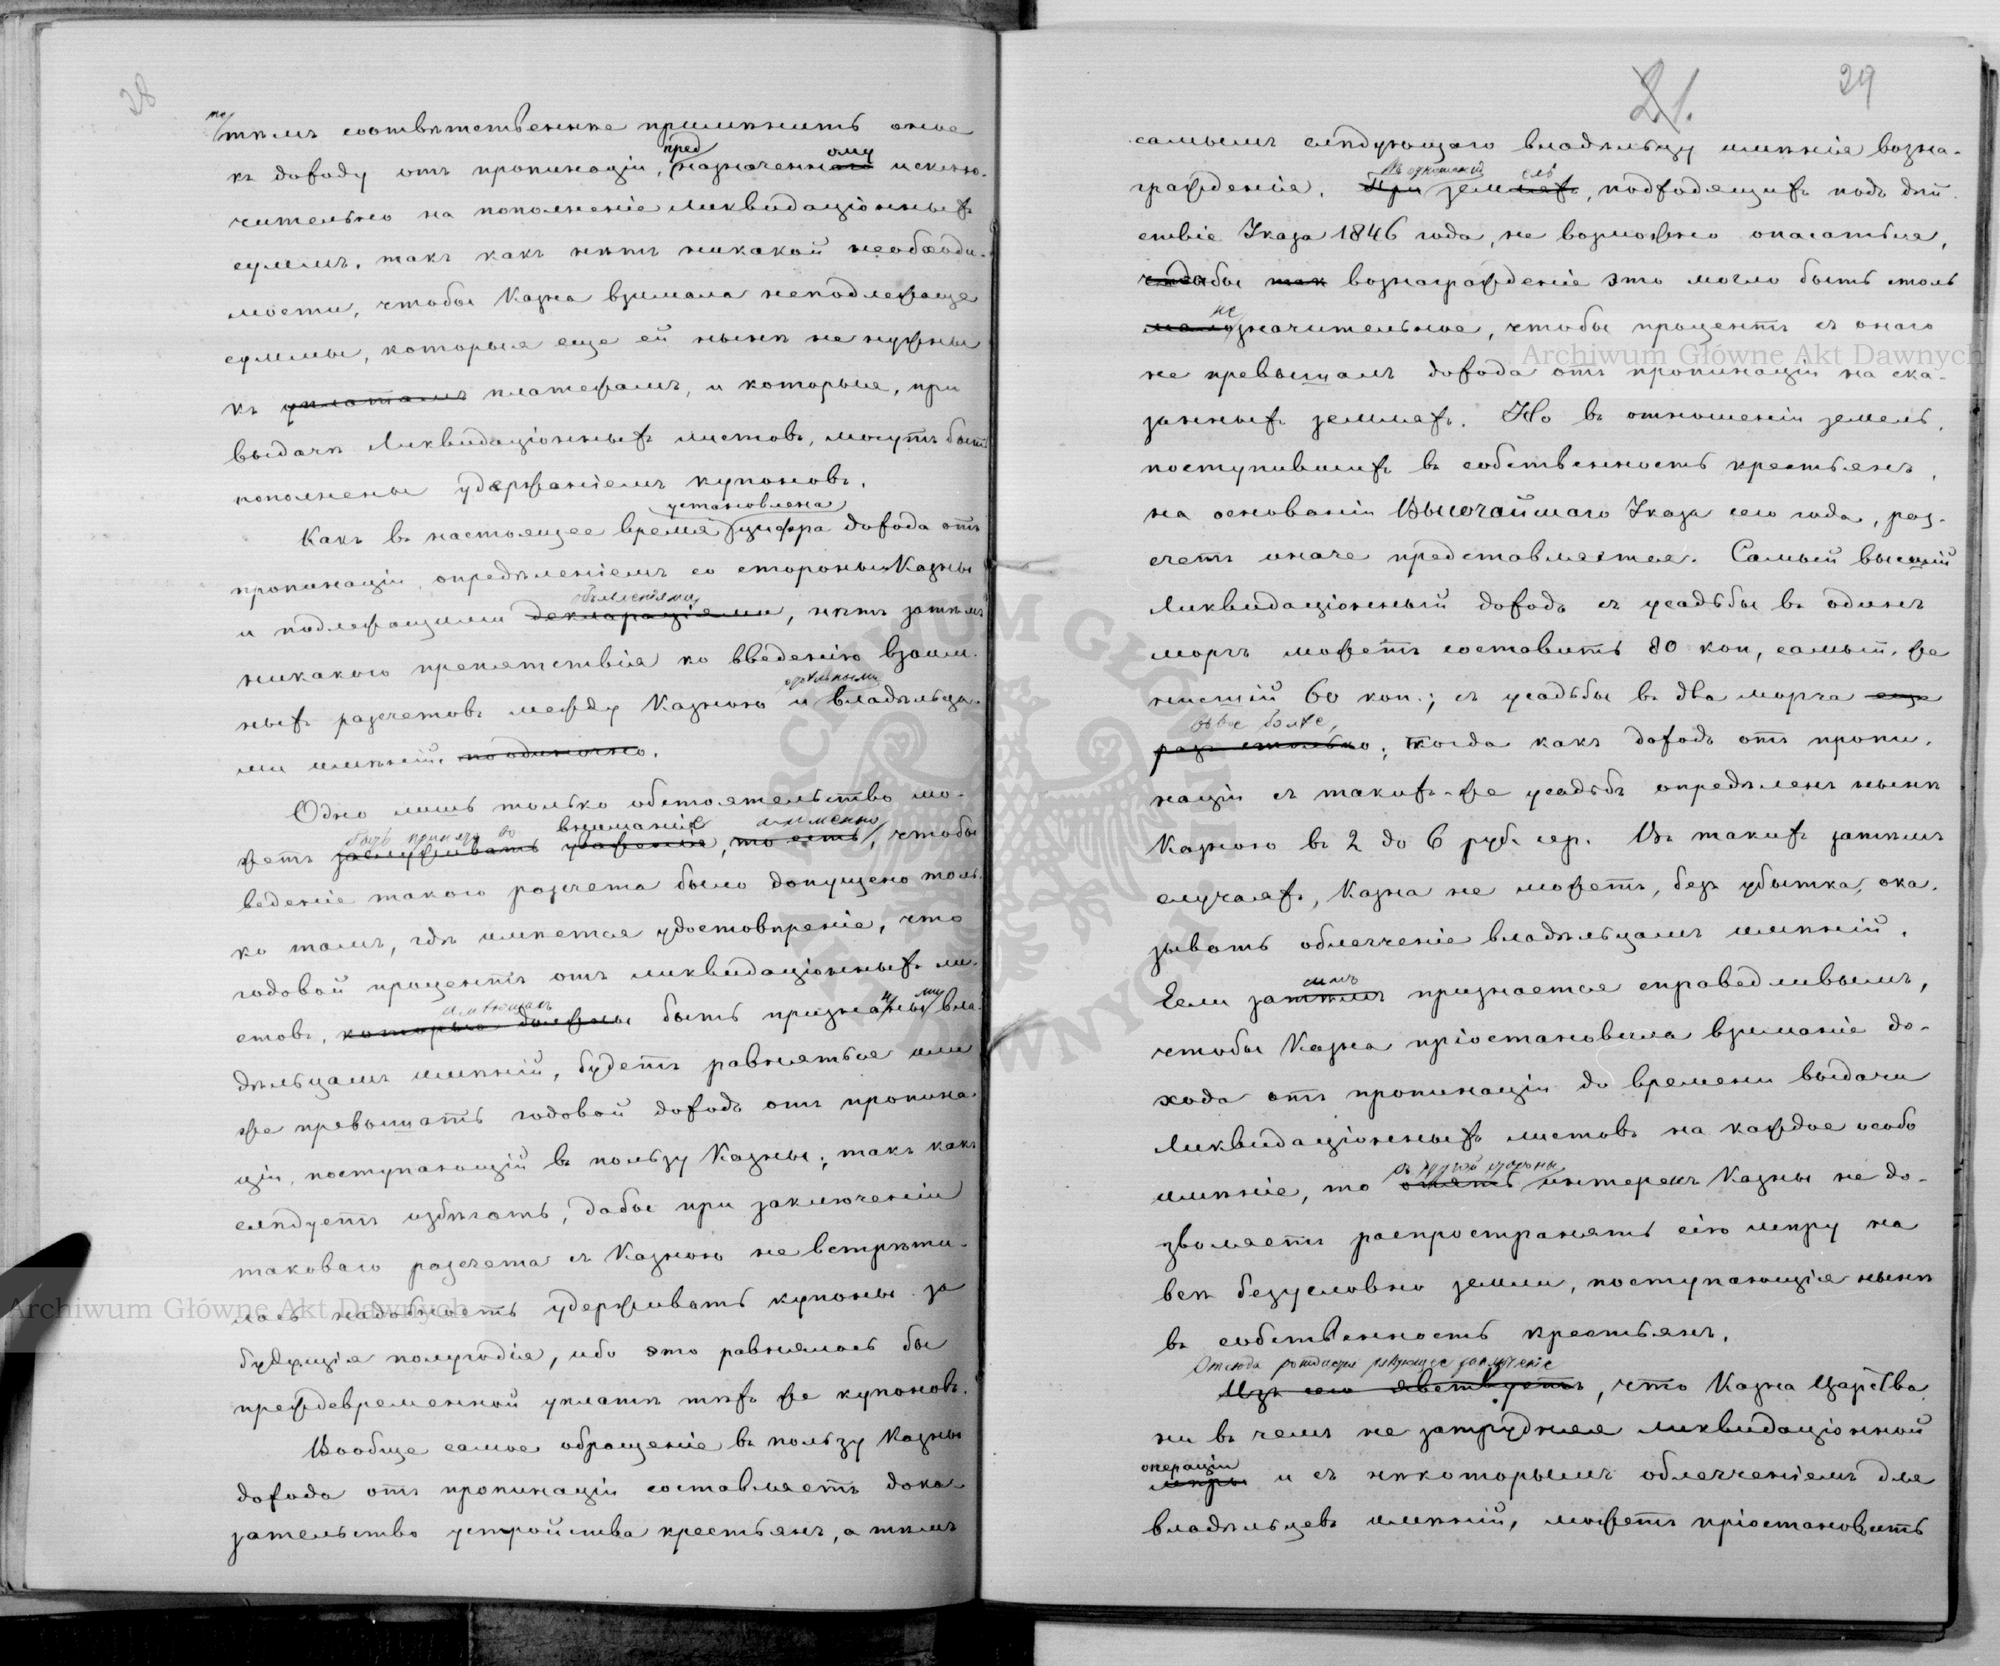 28
тѣмъ соотвѣтственнѣе примѣнить оное
къ доходу отъ пропинаціи, предназначенному исклю-
чительно на пополненіе Ликвидаціонныхъ
суммъ, такъ какъ нѣтъ никакой необходи-
мости, чтобы Казна взимала неподлежаще
суммы, которыя еще ей нынѣ не нужны
къ уплатамъ платежамъ, и которыя, при
выдачѣ Ликвидаціонныхъ листовъ, могутъ быть
пополнены удержаніемъ купоновъ.
установлена
Какъ въ настоящее время цифра дохода отъ
пропинаціи опредѣленіемъ со стороны Казны
объясненіями
и подлежащими деклараціями, нѣтъ затѣмъ
никакого препятствія ко введенію взаим-
отдѣльными
ныхъ разчетовъ между Казною и владѣльца-
ми имѣній. поодиночно.
Одно лишь только обстоятельство мо-
быть принято во вниманіе а именно
жетъ заслуживать уваженія, то есть, чтобы
веденіе такого разчета было допущено толь-
ко тамъ, гдѣ имѣется удостовѣреніе, что
годовой процентъ отъ ликвидаціонныхъ ли-
имѣющихъ
стовъ, которые должны быть признаны вла-
дѣльцамъ имѣній, будетъ равняться или
же превышать годовой доходъ отъ пропина-
ціи, поступающій въ пользу Казны; такъ какъ
слѣдуетъ избѣгать, дабы при заключеніи
таковаго разчета съ Казною не встрѣти-
лась надобность удерживать купоны за
будущія полугодія, ибо это равнялось бы
преждевременной уплатѣ тѣхъ же купоновъ.
Вообще самое обращеніе въ пользу Казны
дохода отъ пропинаціи составляетъ дока-
зательство устройства крестьянъ, а тѣмъ
21. 29
самымъ слѣдующаго владѣльцу имѣнія возна-
Въ отношеніи
гражденія. При земляхъ, подходящихъ подъ дѣй-
ствіе Указа 1846 года, не возможно опасаться,
чтобы так вознагражденіе это могло быть столь
не
малозначительное, чтобы процентъ съ онаго
не превышалъ дохода отъ пропинаціи на ска-
занныхъ земляхъ. Но въ отношеніи земель,
поступившихъ въ собственность крестьянъ,
на основаніи Высочайшаго Указа сего года, раз-
счетъ иначе представляется. Самый высшій
Ликвидаціонный доходъ съ усадьбы въ одинъ
моргъ можетъ составить 80 коп, самый-же
нисшій 60 коп.; съ усадьбы въ два морга еще
вдвое болѣе,
разъ столько; тогда какъ доходъ отъ пропи-
націи съ такихъ-же усадьбъ опредѣленъ нынѣ
Казною въ 2 до 6 руб. сер. Въ такихъ затѣмъ
случаяхъ, Казна не можетъ, безъ убытка, ока-
зывать облегченіе владѣльцамъ имѣній.
Если затѣмъ признается справедливымъ,
чтобы Казна пріостановила взиманіе до-
хода отъ пропинаціи до времени выдачи
Ликвидаціонныхъ листовъ на каждое особо
съ другой стороны
имѣніе, то опять интересъ Казны не до-
зволяетъ распространять сію мѣру на
всѣ безусловно земли, поступающія нынѣ
въ собственность крестьянъ.
Отсюда рождается слѣдующее заключеніе
Изъ сего явствуетъ, что Казна Царства
ни въ чемъ не затрудняя ликвидаціонной
операціи
мѣры и съ нѣкоторымъ облегченіемъ для
владѣльцевъ имѣній, можетъ пріостановить
Archiwum Główne Akt Dawnych
Archiwum Główne Akt Dawnych
ARCHIWUM GŁÓWNE AKT DAWNYCH